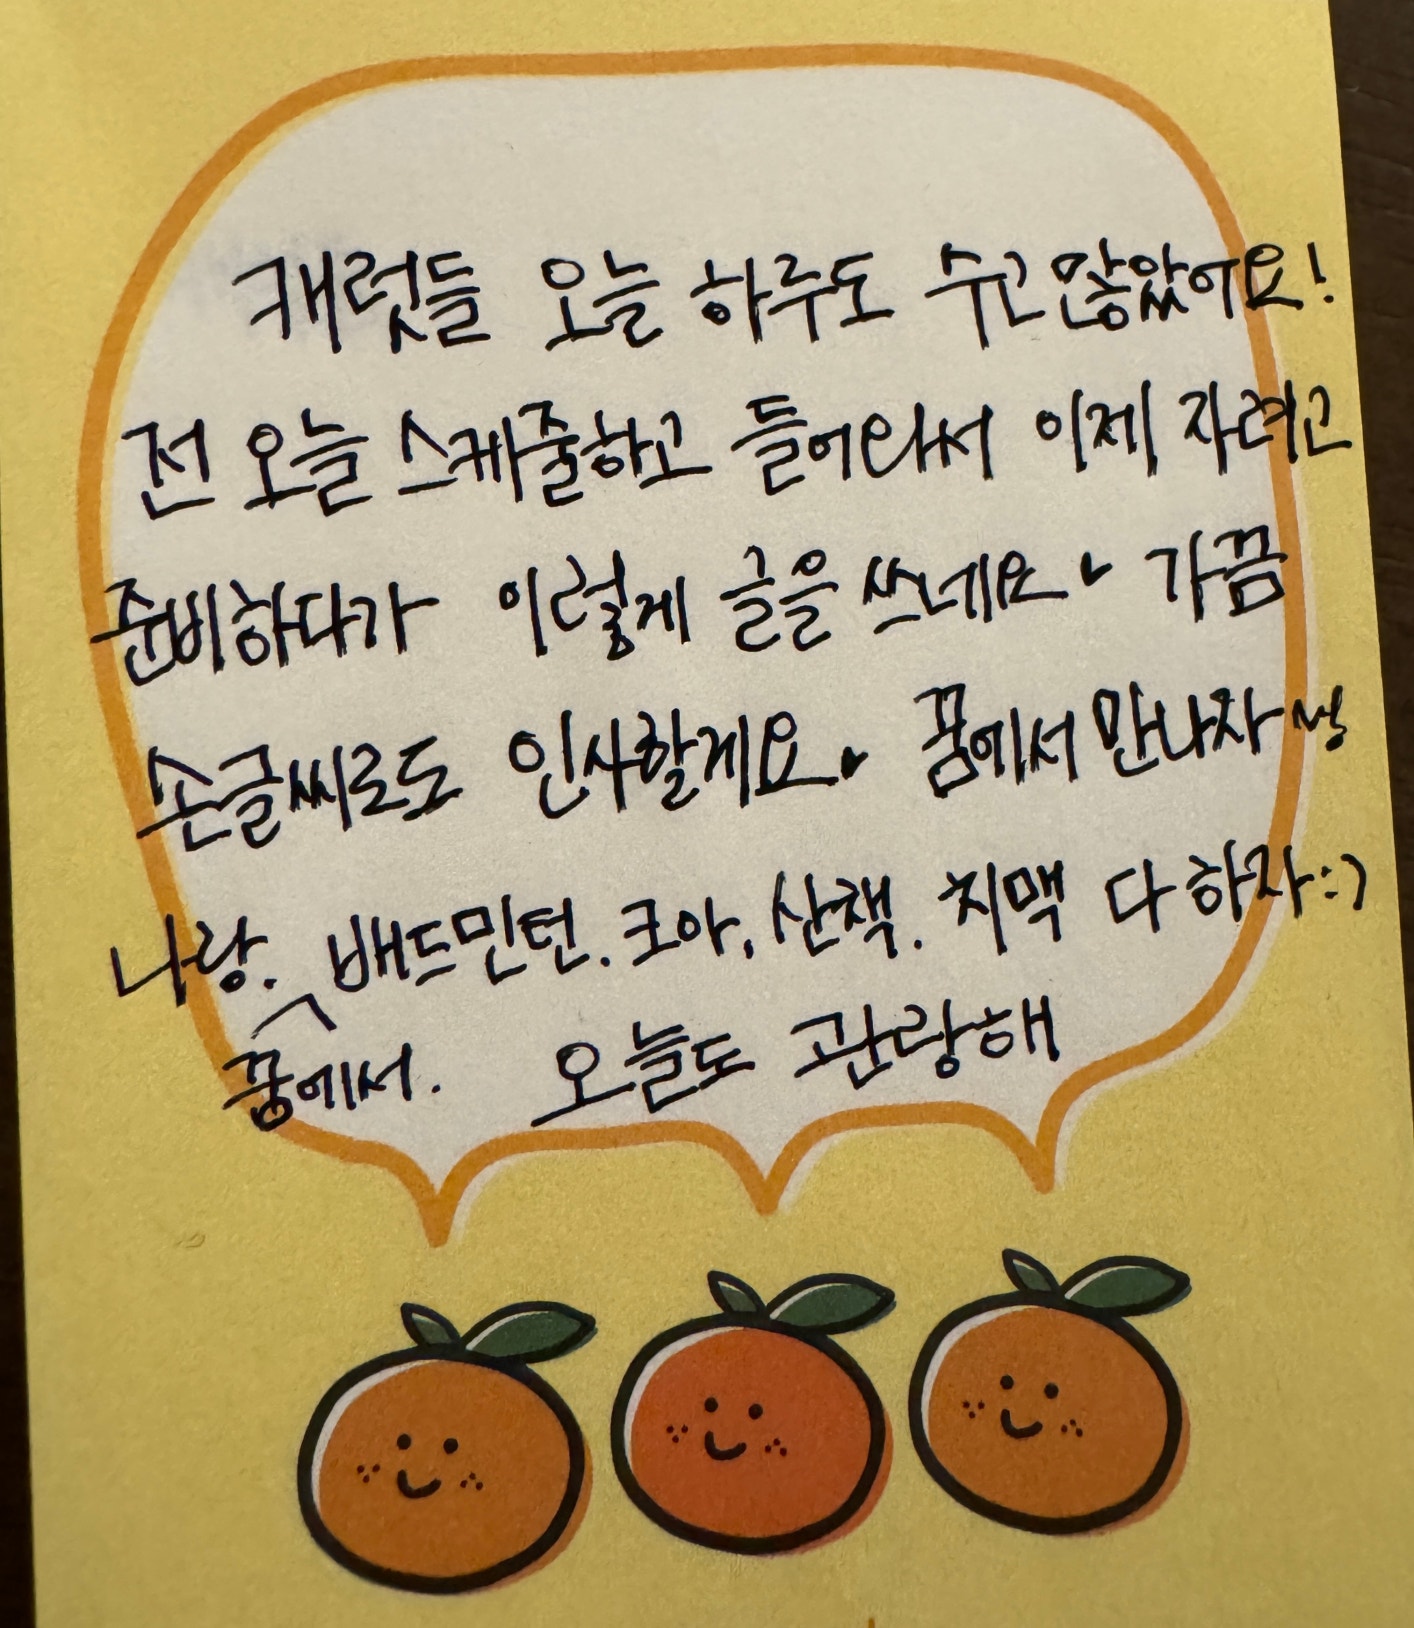 캐럿들 오늘 하루도 수고많았어요!
전 오늘 스케줄하고 들어와서 이제 자려고
준비하다가 이렇게 글을 쓰네요♥ 가끔
손글씨로도 인사할게요♥ 꿈에서 만나자
나랑. 배드민턴. 크아, 산책. 치맥 다 하자:)
꿈에서. 오늘도 관랑해